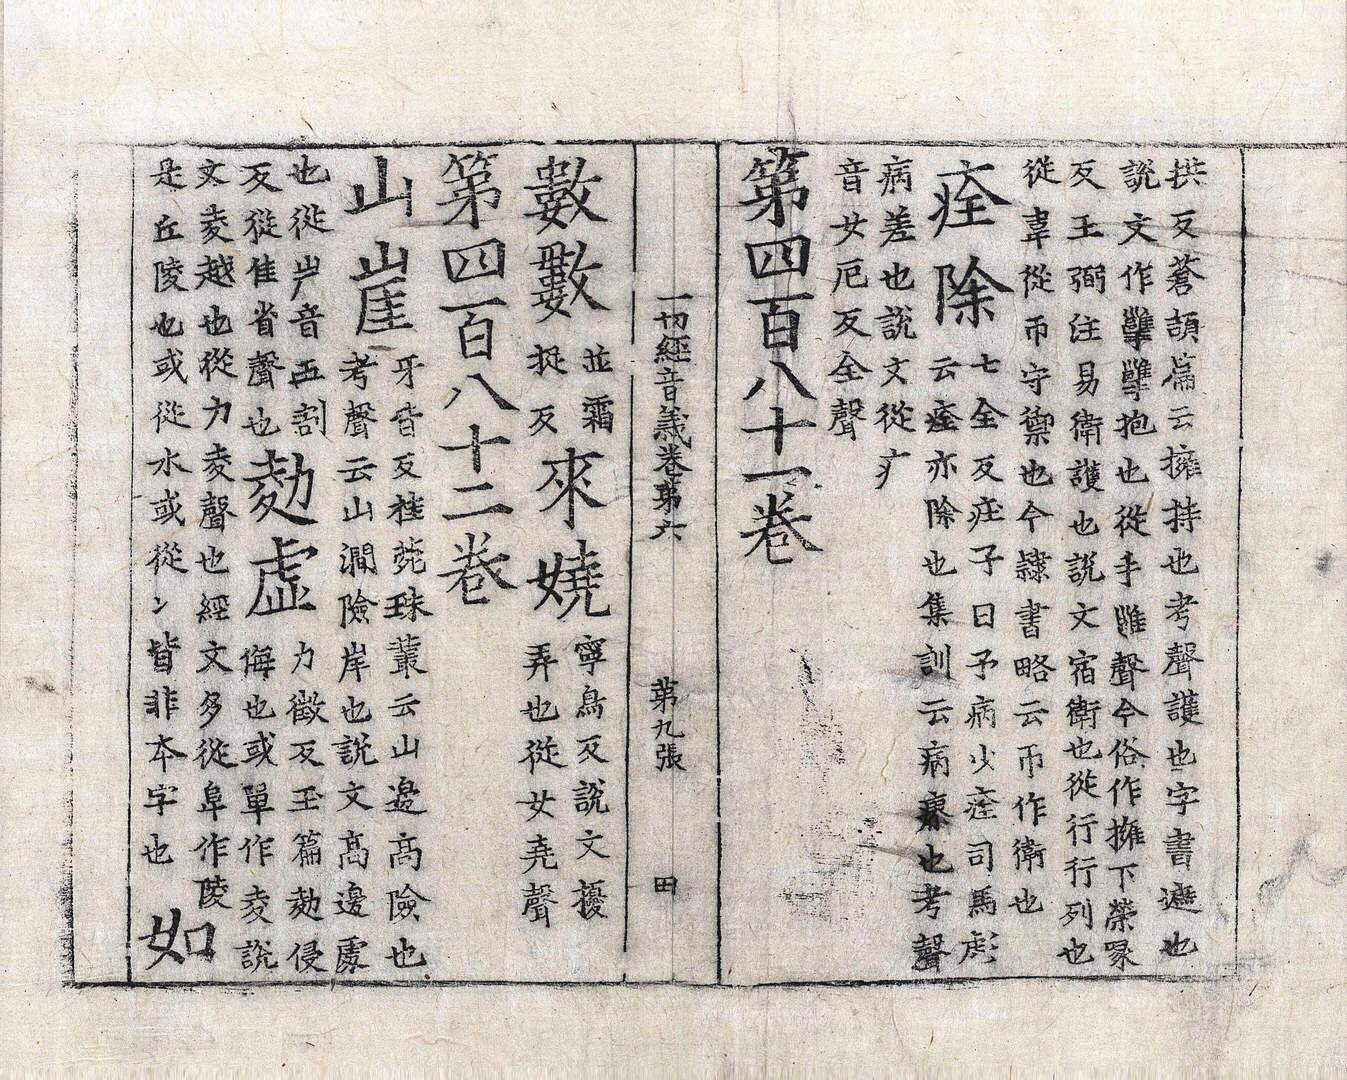 拱反蒼頡篇云擁持也考聲護也字書遮也
說文作㩴㩴抱也從手雝聲今俗作擁下榮㓂
反王弼注易衛護也說文宿衛也從行行列也
從韋從帀守禦也今隸書略云帀作衛也
痊除
七全反莊子曰予病少痊司馬彪
云痊亦除也集訓云病瘳也考聲
病差也說文從疒
音女厄反全聲
第四百八十一卷
一切經音義卷第六 第九張 田
數數
並霜
捉反
來嬈
寧鳥反說文擾
弄也從女堯聲
第四百八十二卷
山崖
牙皆反桂苑珠叢云山邊高險也
考聲云山澗險岸也說文高邊處
也從屵音五割
反從隹省聲也
勎虛
力徵反玉篇勎侵
侮也或單作夌說
文夌越也從力夌聲也經文多從阜作陵
是丘陵也或從水或從冫皆非本字也
如